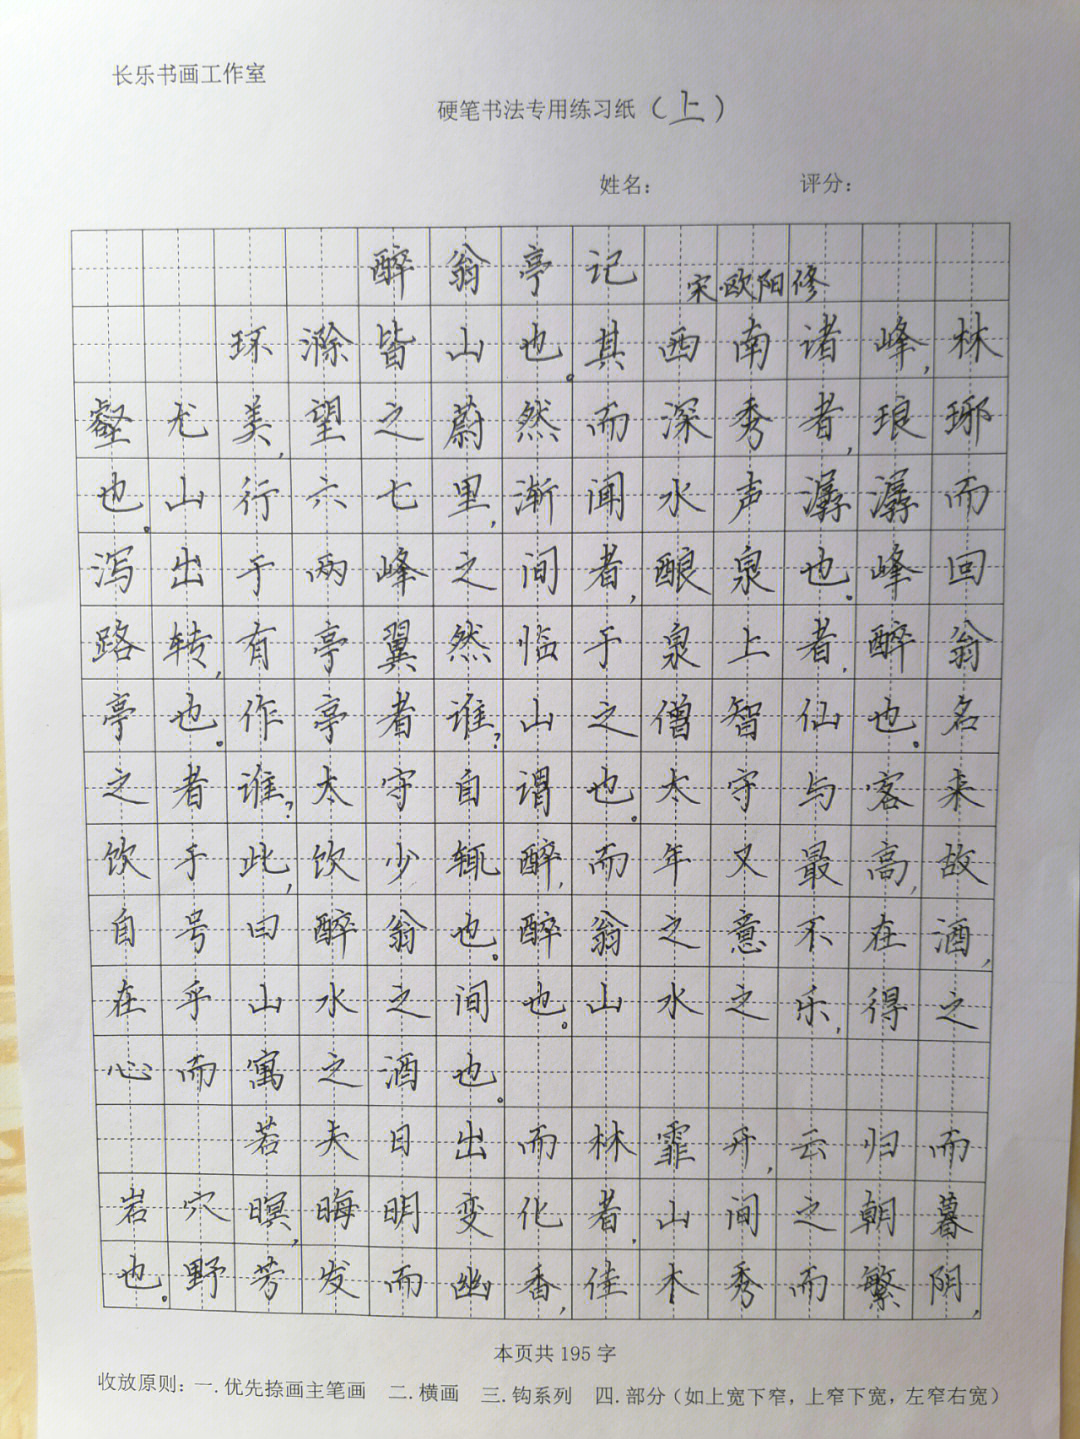 长乐书画工作室
硬笔书法专用练习纸（上）
姓名： 评分：
醉翁亭记 宋·欧阳修
环滁皆山也。其西南诸峰，林
壑尤美，望之蔚然而深秀者，琅琊
也。山行六七里，渐闻水声潺潺而
泻出于两峰之间者，酿泉也。峰回
路转，有亭翼然临于泉上者，醉翁
亭也。作亭者谁？山之僧智仙也。名
之者谁？太守自谓也。太守与客来
饮于此，饮少辄醉，而年又最高，故
自号曰醉翁也。醉翁之意不在酒，
在乎山水之间也。山水之乐，得之
心而寓之酒也。
若夫日出而林霏开，云归而
岩穴暝，晦明变化者，山间之朝暮
也。野芳发而幽香，佳木秀而繁阴，
本页共 195 字
收放原则：一.优先捺画主笔画 二.横画 三.钩系列 四.部分（如上宽下窄，上窄下宽，左窄右宽）